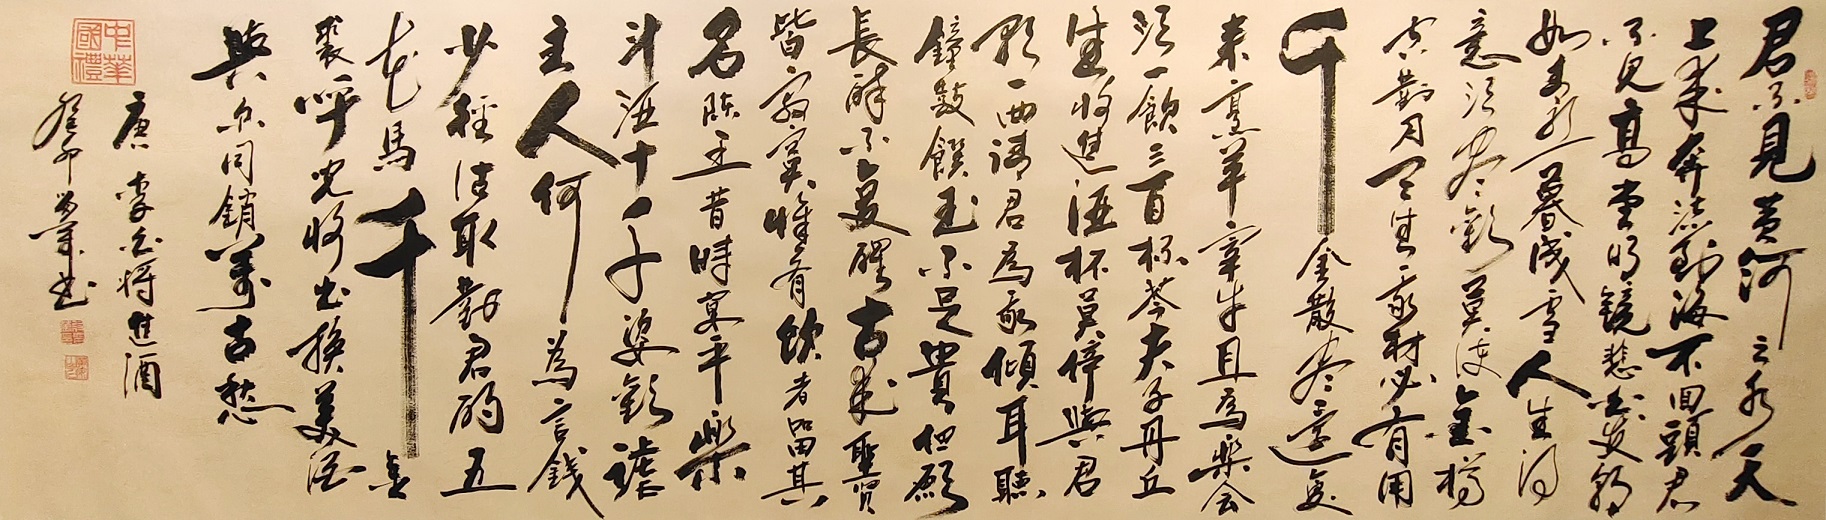 君不見黃河之水天
上來奔流到海不回頭君
不見高堂明鏡悲白髮朝
如青絲暮成雪人生得
意須盡歡莫使金樽
空對月天生我材必有用
千金散盡還復
來烹羊宰牛且為樂会
須一飲三百杯岑夫子丹丘
生將進酒杯莫停與君
歌一曲請君為我傾耳聽
鐘鼓饌玉不足貴但願
長醉不復醒古來聖賢
皆寂寞惟有飲者留其
名陳王昔時宴平樂
斗酒十千姿歡謔
主人何為言錢
少徑沽取對君酌五
花馬千金
裘呼兒將出換美酒
與爾同銷萬古愁
中華國禮
唐李白將進酒
癸卯書